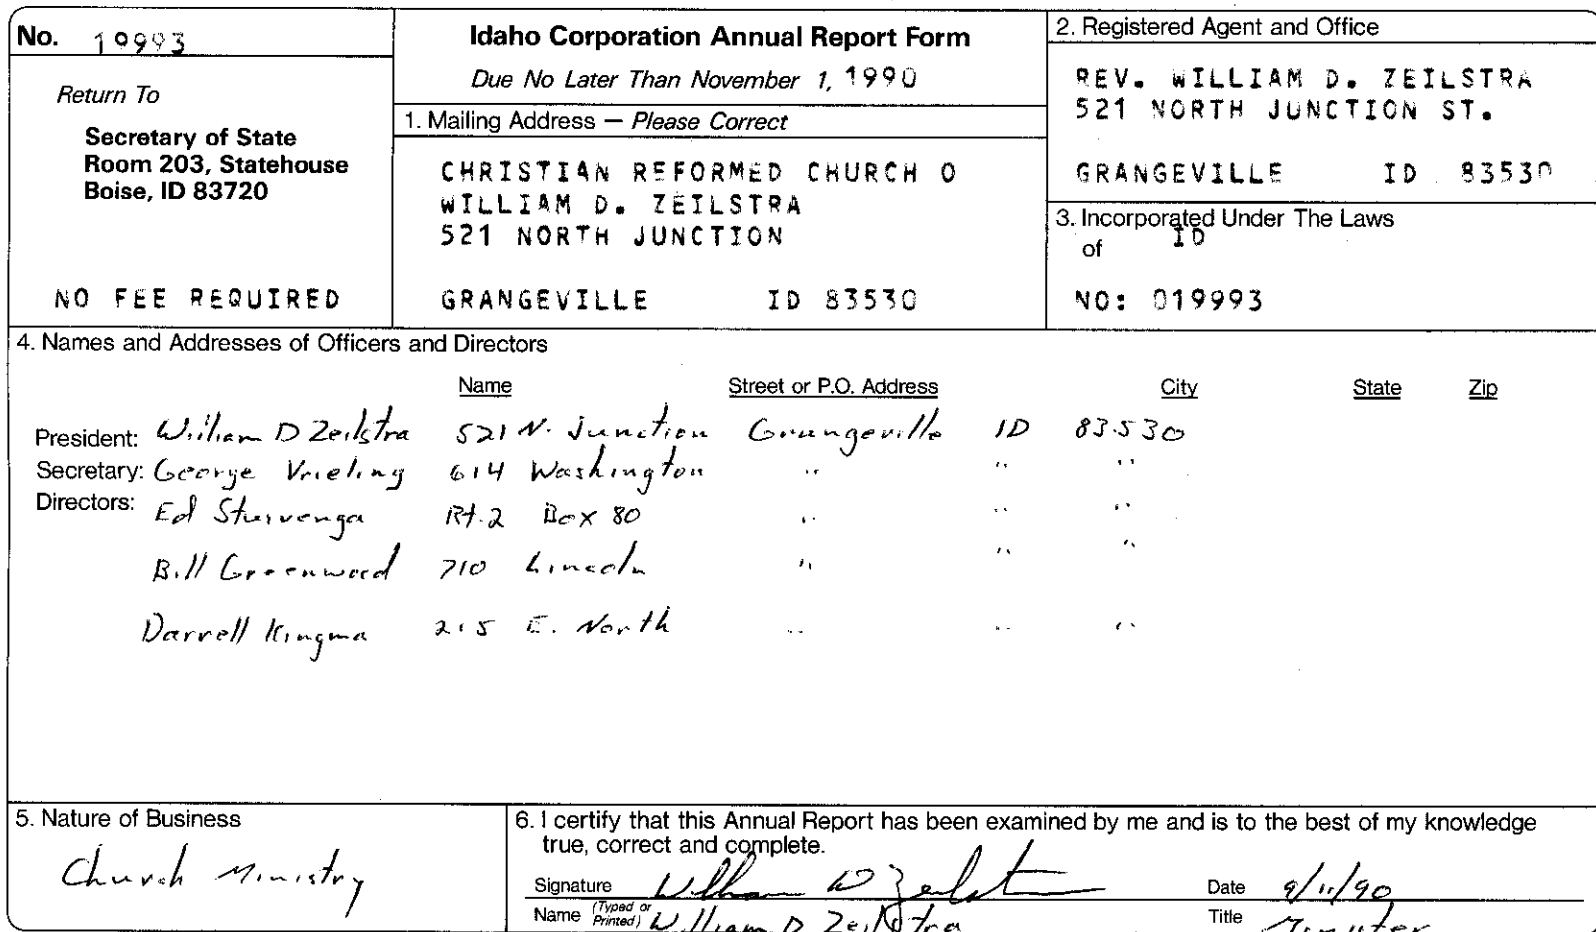 No. 19993
Return To
Secretary of State
Room 203, Statehouse
Boise, ID 83720
NO FEE REQUIRED
Idaho Corporation Annual Report Form
Due No Later Than November 1, 1990
1. Mailing Address — Please Correct
CHRISTIAN REFORMED CHURCH O
WILLIAM D. ZEILSTRA
521 NORTH JUNCTION
GRANGEVILLE ID 83530
2. Registered Agent and Office
REV. WILLIAM D. ZEILSTRA
521 NORTH JUNCTION ST.
GRANGEVILLE ID 83530
3. Incorporated Under The Laws
of ID
NO: 019993
4. Names and Addresses of Officers and Directors
Name Street or P.O. Address City State Zip
President: William D Zeilstra 521 N. Junction Grangeville ID 83530
Secretary: George Vrieling 614 Washington " " "
Directors: Ed Stuivenga Rt. 2 Box 80 " " "
Bill Greenwood 710 Lincoln " " "
Darrell Kingma 215 E. North " " "
5. Nature of Business
Church Ministry
6. I certify that this Annual Report has been examined by me and is to the best of my knowledge
true, correct and complete.
Signature William D Zeilstra Date 9/11/90
Name (Typed or Printed) William D Zeilstra Title Minister